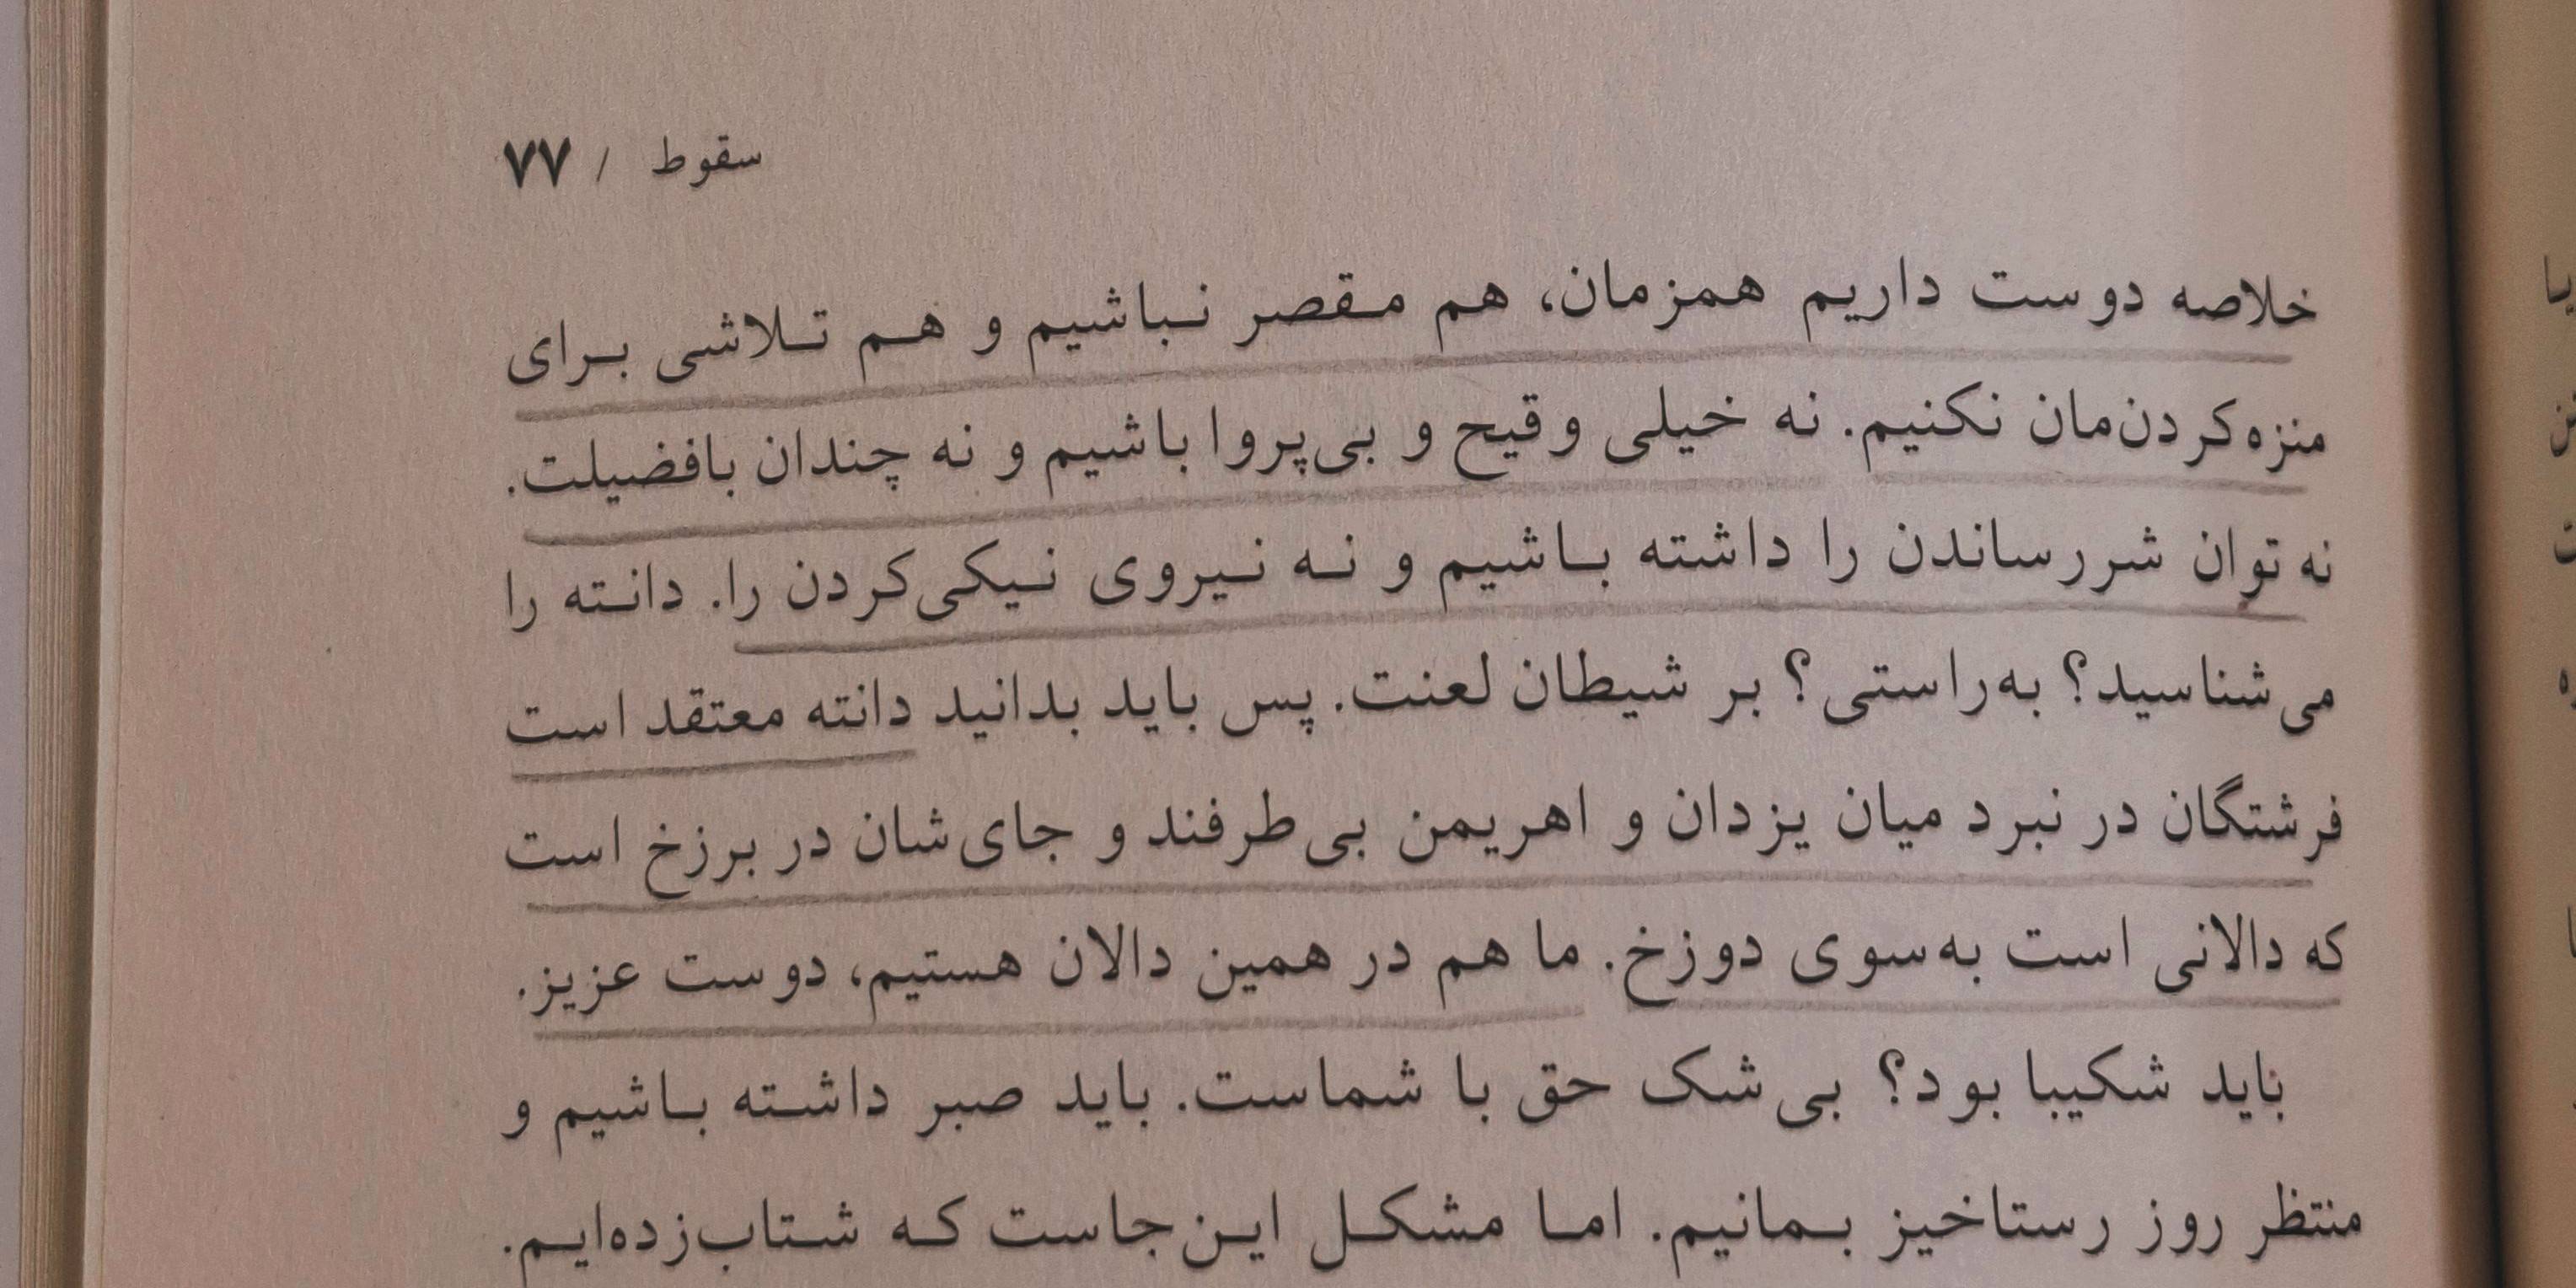 سقوط / ۷۷
خلاصه دوست داریم همزمان، هم مقصر نباشیم و هم تلاشی برای
منزه‌کردن‌مان نکنیم. نه خیلی وقیح و بی‌پروا باشیم و نه چندان بافضیلت.
نه توان شررساندن را داشته باشیم و نه نیروی نیکی‌کردن را. دانته را
می‌شناسید؟ به‌راستی؟ بر شیطان لعنت. پس باید بدانید دانته معتقد است
فرشتگان در نبرد میان یزدان و اهریمن بی‌طرفند و جای‌شان در برزخ است
که دالانی است به‌سوی دوزخ. ما هم در همین دالان هستیم، دوست عزیز.
باید شکیبا بود؟ بی‌شک حق با شماست. باید صبر داشته باشیم و
منتظر روز رستاخیز بمانیم. اما مشکل این‌جاست که شتاب‌زده‌ایم.